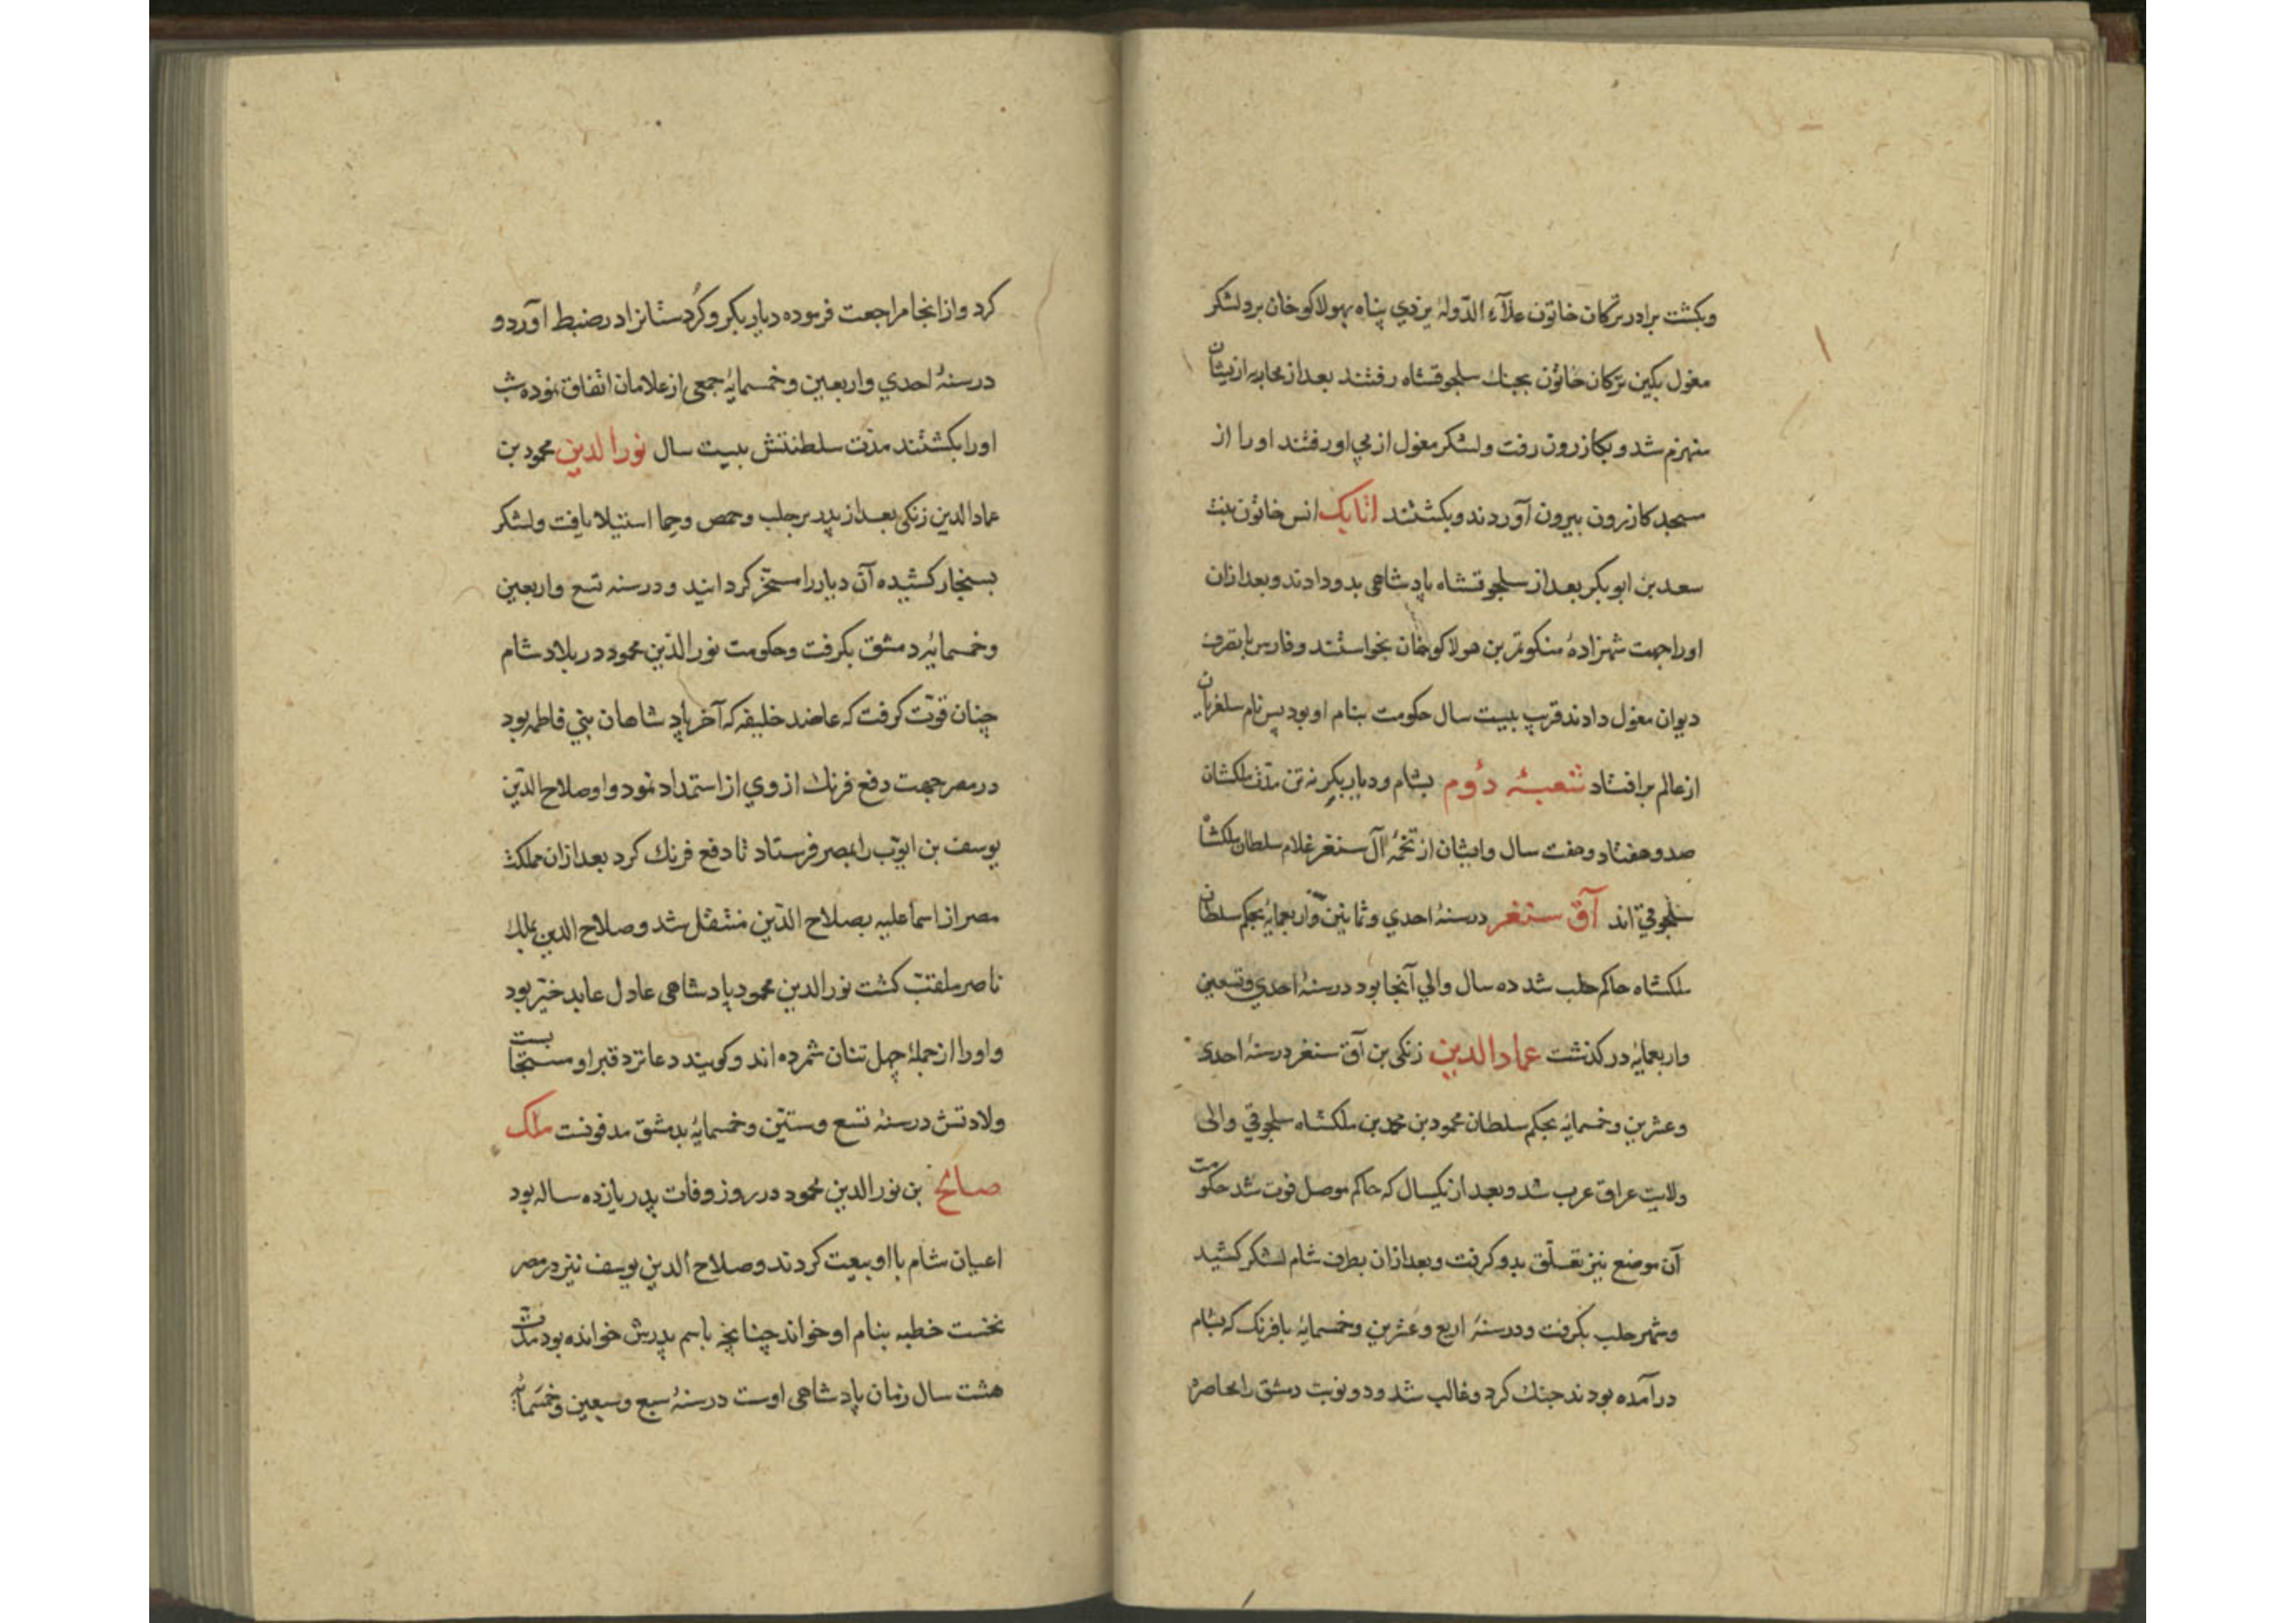 وبکشت برادر ترکان خاتون علاء الدّولهٔ یزدي پناه بهولاکو خان برد لشکر
مغول بکین ترکان خاتون بجنك سلجوقشاه رفتند بعد از محاربه ازیشان
منهزم شد و بکازرون رفت ولشکر مغول از پي او رفتند اورا از
مسجد کازرون بیرون آوردند وبکشتند اتابک انس خاتون بنت
سعد بن ابو بکر بعد از سلجوقشاه پادشاهی بدو دادند وبعد ازان
اورا جهت شهزادهٔ منکوتمر بن هولاکو خان بخواستند وفارس با تصرف
دیوان مغول دادند قرب بیست سال حکومت بنام او بود پس نام سلغریان
از عالم برافتاد شعبهٔ دوم بشام ودیار بکر نه تن مدّت ملکشان
صد وهفتاد وهفت سال وایشان از تخمهٔ آل سنغر غلام سلطان ملکشاه
سلجوقي اند آق سنغر درسنهٔ احدي وثمانین واربعمایهٔ بحکم سلطان
ملکشاه حاکم حلب شد ده سال والي آنجا بود درسنهٔ احدي وتسعین
واربعمایهٔ درکذشت عماد الدین زنکی بن آق سنغر درسنهٔ احدی
وعشرین وخمسمایهٔ بحکم سلطان محمود بن محمد بن ملکشاه سلجوقي والی
ولایت عراق عرب شد وبعد از یکسال که حاکم موصل فوت شد حکومت
آن موضع نیز تعلّق بدو کرفت وبعد ازان بطرف شام لشکر کشید
وشهر حلب بکرفت ودرسنهٔ اربع وعشرین وخمسمایهٔ بافرنک که بشام
درآمده بودند جنك کرد وغالب شد ودو نوبت دمشق را محاصره
کرد وازانجا مراجعت فرموده دیار بکر وکُردستانرا در ضبط آورد و
درسنهٔ احدي واربعین وخمسمایهٔ جمعی از غلامان اتفاق نموده شب
اورا بکشتند مدّت سلطنتش بیست سال نور الدین محمود بن
عماد الدین زنکی بعد از پدر بر حلب وحمص وحما استیلا یافت ولشکر
بسنجار کشیده آن دیار را مسخّر کردانید ودرسنه تسع واربعین
وخمسمایهٔ دمشق بکرفت وحکومت نور الدّین محمود در بلاد شام
چنان قوّت کرفت که عاضد خلیفه که آخر پادشاهان بني فاطمه بود
در مصر جهت دفع فرنك از وي از استمداد نمود واو صلاح الدّین
یوسف بن ایوّب را بمصر فرستاد تا دفع فرنك کرد بعد ازان مملکت
مصر از اسماعلیه بصلاح الدّین منتقل شد وصلاح الدین بملك
ناصر ملقّب کشت نور الدین محمود پادشاهی عادل عابد خیّر بود
واورا از جملهٔ چهل تنان شمرده اند وکویند دعا نزد قبر او مستجابست
ولادتش درسنهٔ تسع وستّین وخمسمایهٔ بدمشق مدفونست ملک
صالح بن نور الدین محمود در روز وفات پدر یازده ساله بود
اعیان شام با او بیعت کردند وصلاح الدین یوسف نیز در مصر
نخست خطبه بنام او خواند چنانچه باسم پدرش خوانده بود مدّت
هشت سال زمان پادشاهی اوست درسنهٔ سبع وسبعین وخمسمایهٔ